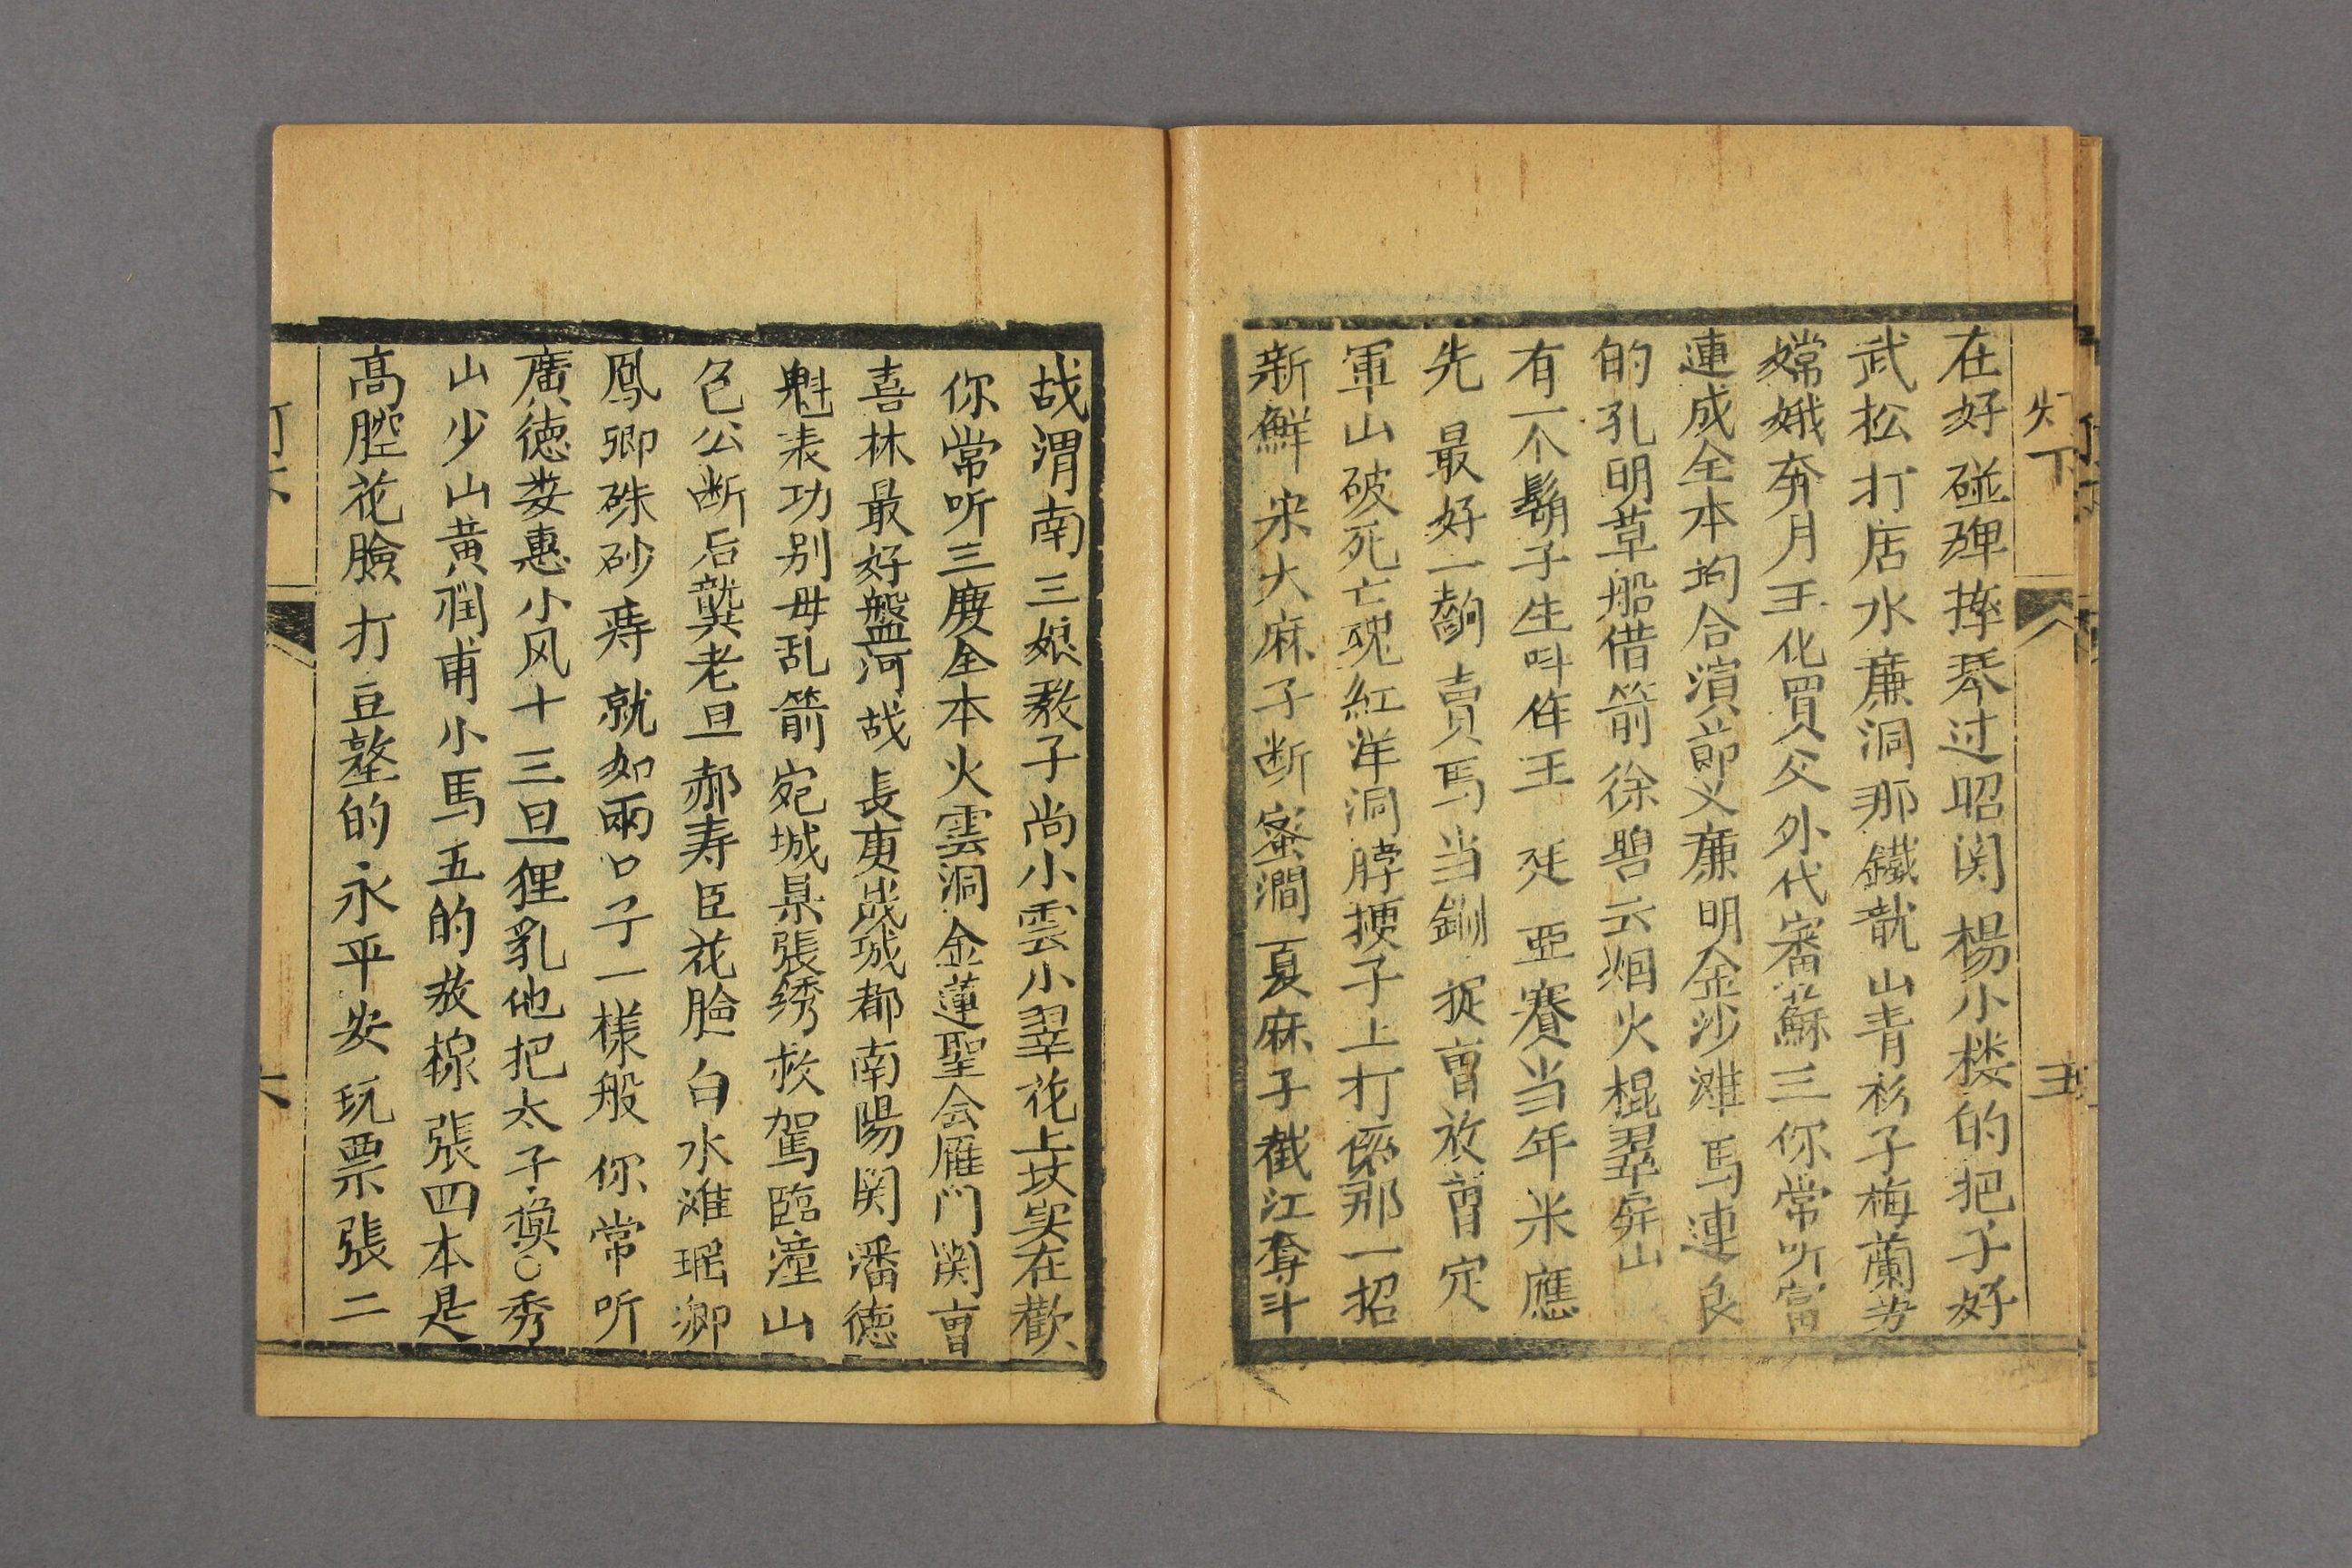 灯下
五
在好碰碑摔琴过昭関楊小楼的把子好
武松打店水簾洞那鐵龍山青衫子梅蘭芳
嫦娥奔月王化買父外代審蘇三你常听富
連成全本均合演節义廉明金沙滩馬連良
的孔明草船借箭徐碧云烟火棍翠屏山
有一个鬍子生呌作王廷亞賽当年米應
先最好一齣賣馬当鐧捉曹放曹定
軍山破死亡魂紅洋洞脖挭子上打係那一招
新鮮宋大麻子断蜜澗夏麻子截江奪斗
战渭南三娘教子尚小雲小翠花上坟实在歡
你常听三慶全本火雲洞金蓮聖会雁門関曹
喜林最好盤河战長東成城都南陽関潘德
魁表功别母乱箭宛城県張绣救駕臨潼山
包公断后龔老旦郝寿臣花臉白水滩琚卿
鳳卿硃砂痔就如兩口子一様般你常听
廣德娄惠小风十三旦狸乳他把太子换〇秀
山少山黄润甫小馬五的放樑張四本是
高腔花臉打豆墪的永平安玩票張二
六